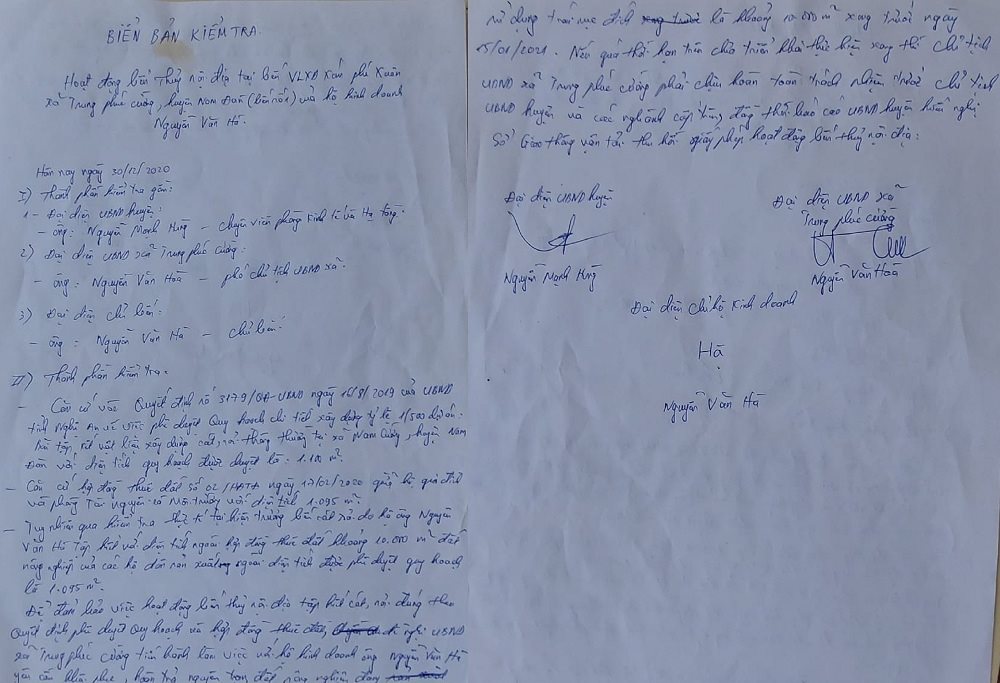 BIÊN BẢN KIỂM TRA.
Hoạt động bến thủy nội địa tại bến VLXD Xóm phú Xuân
xã Trung phúc cường, huyện Nam Đàn (bến số 1) của hộ kinh doanh
Nguyễn Văn Hà.
Hôm nay ngày 30/12/2020
I) Thành phần kiểm tra gồm:
1 - Đại diện UBND huyện:
- ông: Nguyễn Mạnh Hùng - chuyên viên phòng Kinh tế và Hạ tầng.
2) Đại diện UBND xã Trung phúc cường:
- ông: Nguyễn Văn Hoà - phó chủ tịch UBND xã.
3) Đại diện chủ bến:
- ông: Nguyễn Văn Hà - chủ bến.
II) Thành phần kiểm tra:
- Căn cứ vào Quyết định số 3179/QĐ-UBND ngày 16/8/2019 của UBND
tỉnh Nghệ An về việc phê duyệt Quy hoạch chi tiết xây dựng tỷ lệ 1/500 dự án:
Bãi tập kết vật liệu xây dựng cát, sỏi thông thường tại xã Nam Cường, huyện Nam
Đàn với diện tích quy hoạch được duyệt là: 1.100 m².
- Căn cứ hợp đồng thuê đất số 02/HĐTĐ ngày 17/02/2020 giữa hộ gia đình
và phòng Tài nguyên và Môi trường với diện tích 1.095 m².
- Tuy nhiên qua kiểm tra thực tế tại hiện trường bến cát sỏi do hộ ông Nguyễn
Văn Hà tập kết với diện tích ngoài hợp đồng thuê đất khoảng 10.000 m² đất
nông nghiệp của các hộ dân sản xuất ngoài diện tích được phê duyệt quy hoạch
là 1.095 m².
Để đảm bảo việc hoạt động bến thủy nội địa tập kết cát, sỏi đúng theo
Quyết định phê duyệt Quy hoạch và hợp đồng thuê đất đề nghị UBND
xã Trung phúc cường tiến hành làm việc với hộ kinh doanh ông Nguyễn Văn Hà
yêu cầu khắc phục, hoàn trả nguyên trạng đất nông nghiệp đang
sử dụng trái mục đích là khoảng 10.000 m² xong trước ngày
15/01/2021. Nếu quá thời hạn trên chưa triển khai thực hiện xong thì chủ tịch
UBND xã Trung phúc cường phải chịu hoàn toàn trách nhiệm trước chủ tịch
UBND huyện và các nghành cấp trên, đồng thời báo cáo UBND huyện kiến nghị
Sở Giao thông vận tải thu hồi giấy phép hoạt động bến thủy nội địa.
Đại diện UBND huyện
Đại diện UBND xã
Trung phúc cường
Nguyễn Mạnh Hùng
Nguyễn Văn Hoà
Đại diện chủ hộ kinh doanh
Hà
Nguyễn Văn Hà